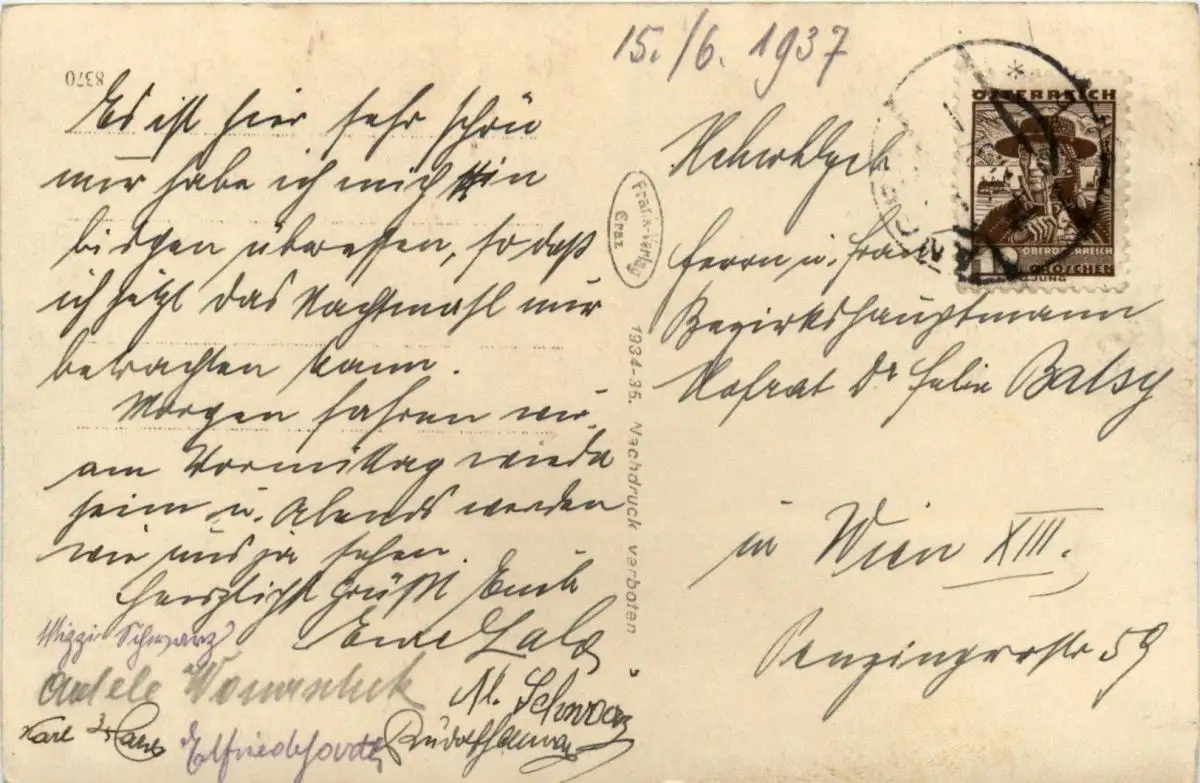 15./6. 1937
8370
Es ist hier sehr schön
nur habe ich mich ein
bisschen überessen, so daß
ich jetzt das Nachtmahl nur
betrachten kann.
Morgen fahren wir
am Vormittag wieder
heim u. Abends werden
wir uns ja sehen.
Herzlichst grüßt Euch
Mizzi Schwarz
Adele
M. Schwarz
Karl
Elfriede
Rudolf
Frank-Verlag
Graz
1934-35. Nachdruck verboten
ÖSTERREICH
OBERÖSTERREICH
GROSCHEN
JUNG
Herrn u. Frau
Bezirkshauptmann
Hofrat Dr Felix Balsy
in Wien XIII.
Penzingerstr 59